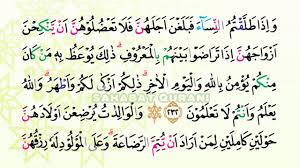 وَاِذَا طَلَّقْتُمُ النِّسَاۤءَ فَبَلَغْنَ اَجَلَهُنَّ فَلَا تَعْضُلُوْهُنَّ اَنْ يَّنْكِحْنَ
اَزْوَاجَهُنَّ اِذَا تَرَاضَوْا بَيْنَهُمْ بِالْمَعْرُوْفِۗ ذٰلِكَ يُوْعَظُ بِهٖ مَنْ كَانَ
مِنْكُمْ يُؤْمِنُ بِاللّٰهِ وَالْيَوْمِ الْاٰخِرِۗ ذٰلِكُمْ اَزْكٰى لَكُمْ وَاَطْهَرُۗ وَاللّٰهُ
SAHABAT QURANI
يَعْلَمُ وَاَنْتُمْ لَا تَعْلَمُوْنَ ۝٢٣٢ وَالْوَالِدٰتُ يُرْضِعْنَ اَوْلَادَهُنَّ
حَوْلَيْنِ كَامِلَيْنِ لِمَنْ اَرَادَ اَنْ يُّتِمَّ الرَّضَاعَةَۗ وَعَلَى الْمَوْلُوْدِ لَهٗ رِزْقُهُنَّ